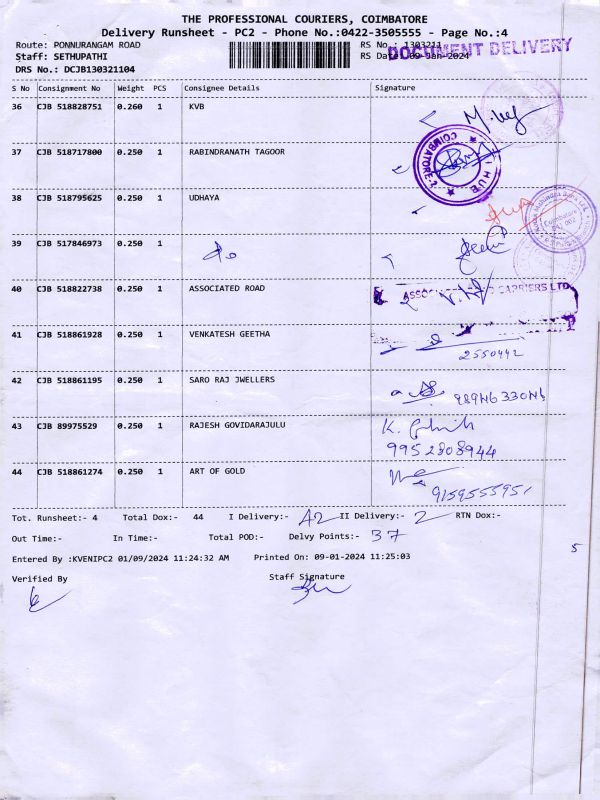 THE PROFESSIONAL COURIERS, COIMBATORE
Delivery Runsheet - PC2 - Phone No.:0422-3505555 - Page No.:4
Route: PONNURANGAM ROAD RS No.: 1303211
Staff: SETHUPATHI RS Date: 09-Jan-2024
DOCUMENT DELIVERY
DRS No.: DCJB130321104
S No Consignment No Weight PCS Consignee Details Signature
36 CJB 518828751 0.260 1 KVB
37 CJB 518717800 0.250 1 RABINDRANATH TAGOOR
COIMBATORE-2 HUB
38 CJB 518795625 0.250 1 UDHAYA
Coimbatore
39 CJB 517846973 0.250 1
40 CJB 518822738 0.250 1 ASSOCIATED ROAD
CARRIERS LTD
41 CJB 518861928 0.250 1 VENKATESH GEETHA
2550442
42 CJB 518861195 0.250 1 SARO RAJ JWELLERS
43 CJB 89975529 0.250 1 RAJESH GOVIDARAJULU
9952808944
44 CJB 518861274 0.250 1 ART OF GOLD
9159555951
Tot. Runsheet:- 4 Total Dox:- 44 I Delivery:- 42 II Delivery:- 2 RTN Dox:-
Out Time:- In Time:- Total POD:- Delvy Points:- 37
5
Entered By :KVENIPC2 01/09/2024 11:24:32 AM Printed On: 09-01-2024 11:25:03
Verified By Staff Signature